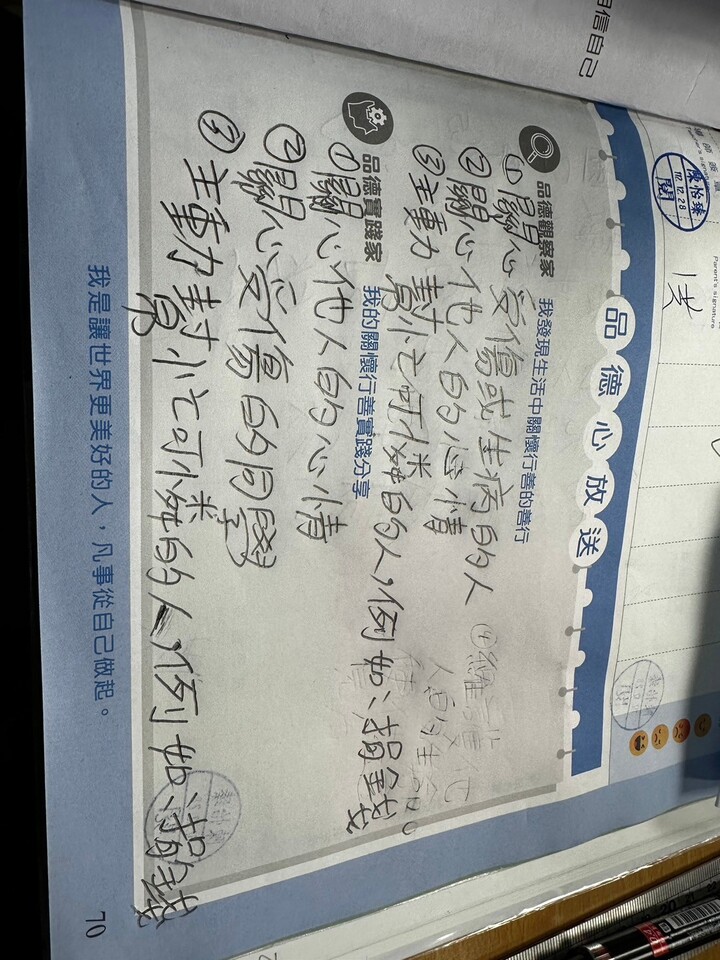 信自己
Parent's signature
112.12.28
閱
品德心放送
品德觀察家 我發現生活中關懷行善的善行
①關心受傷或生病的人
②關心他人的心情
③主動幫忙可憐的人,例如:捐錢。
④維護他人的生命
品德實踐家 我的關懷行善實踐分享
①關心他人的心情
②關心受傷的同學
③主動幫忙可憐的人,例如:捐錢
我是讓世界更美好的人，凡事從自己做起。
70